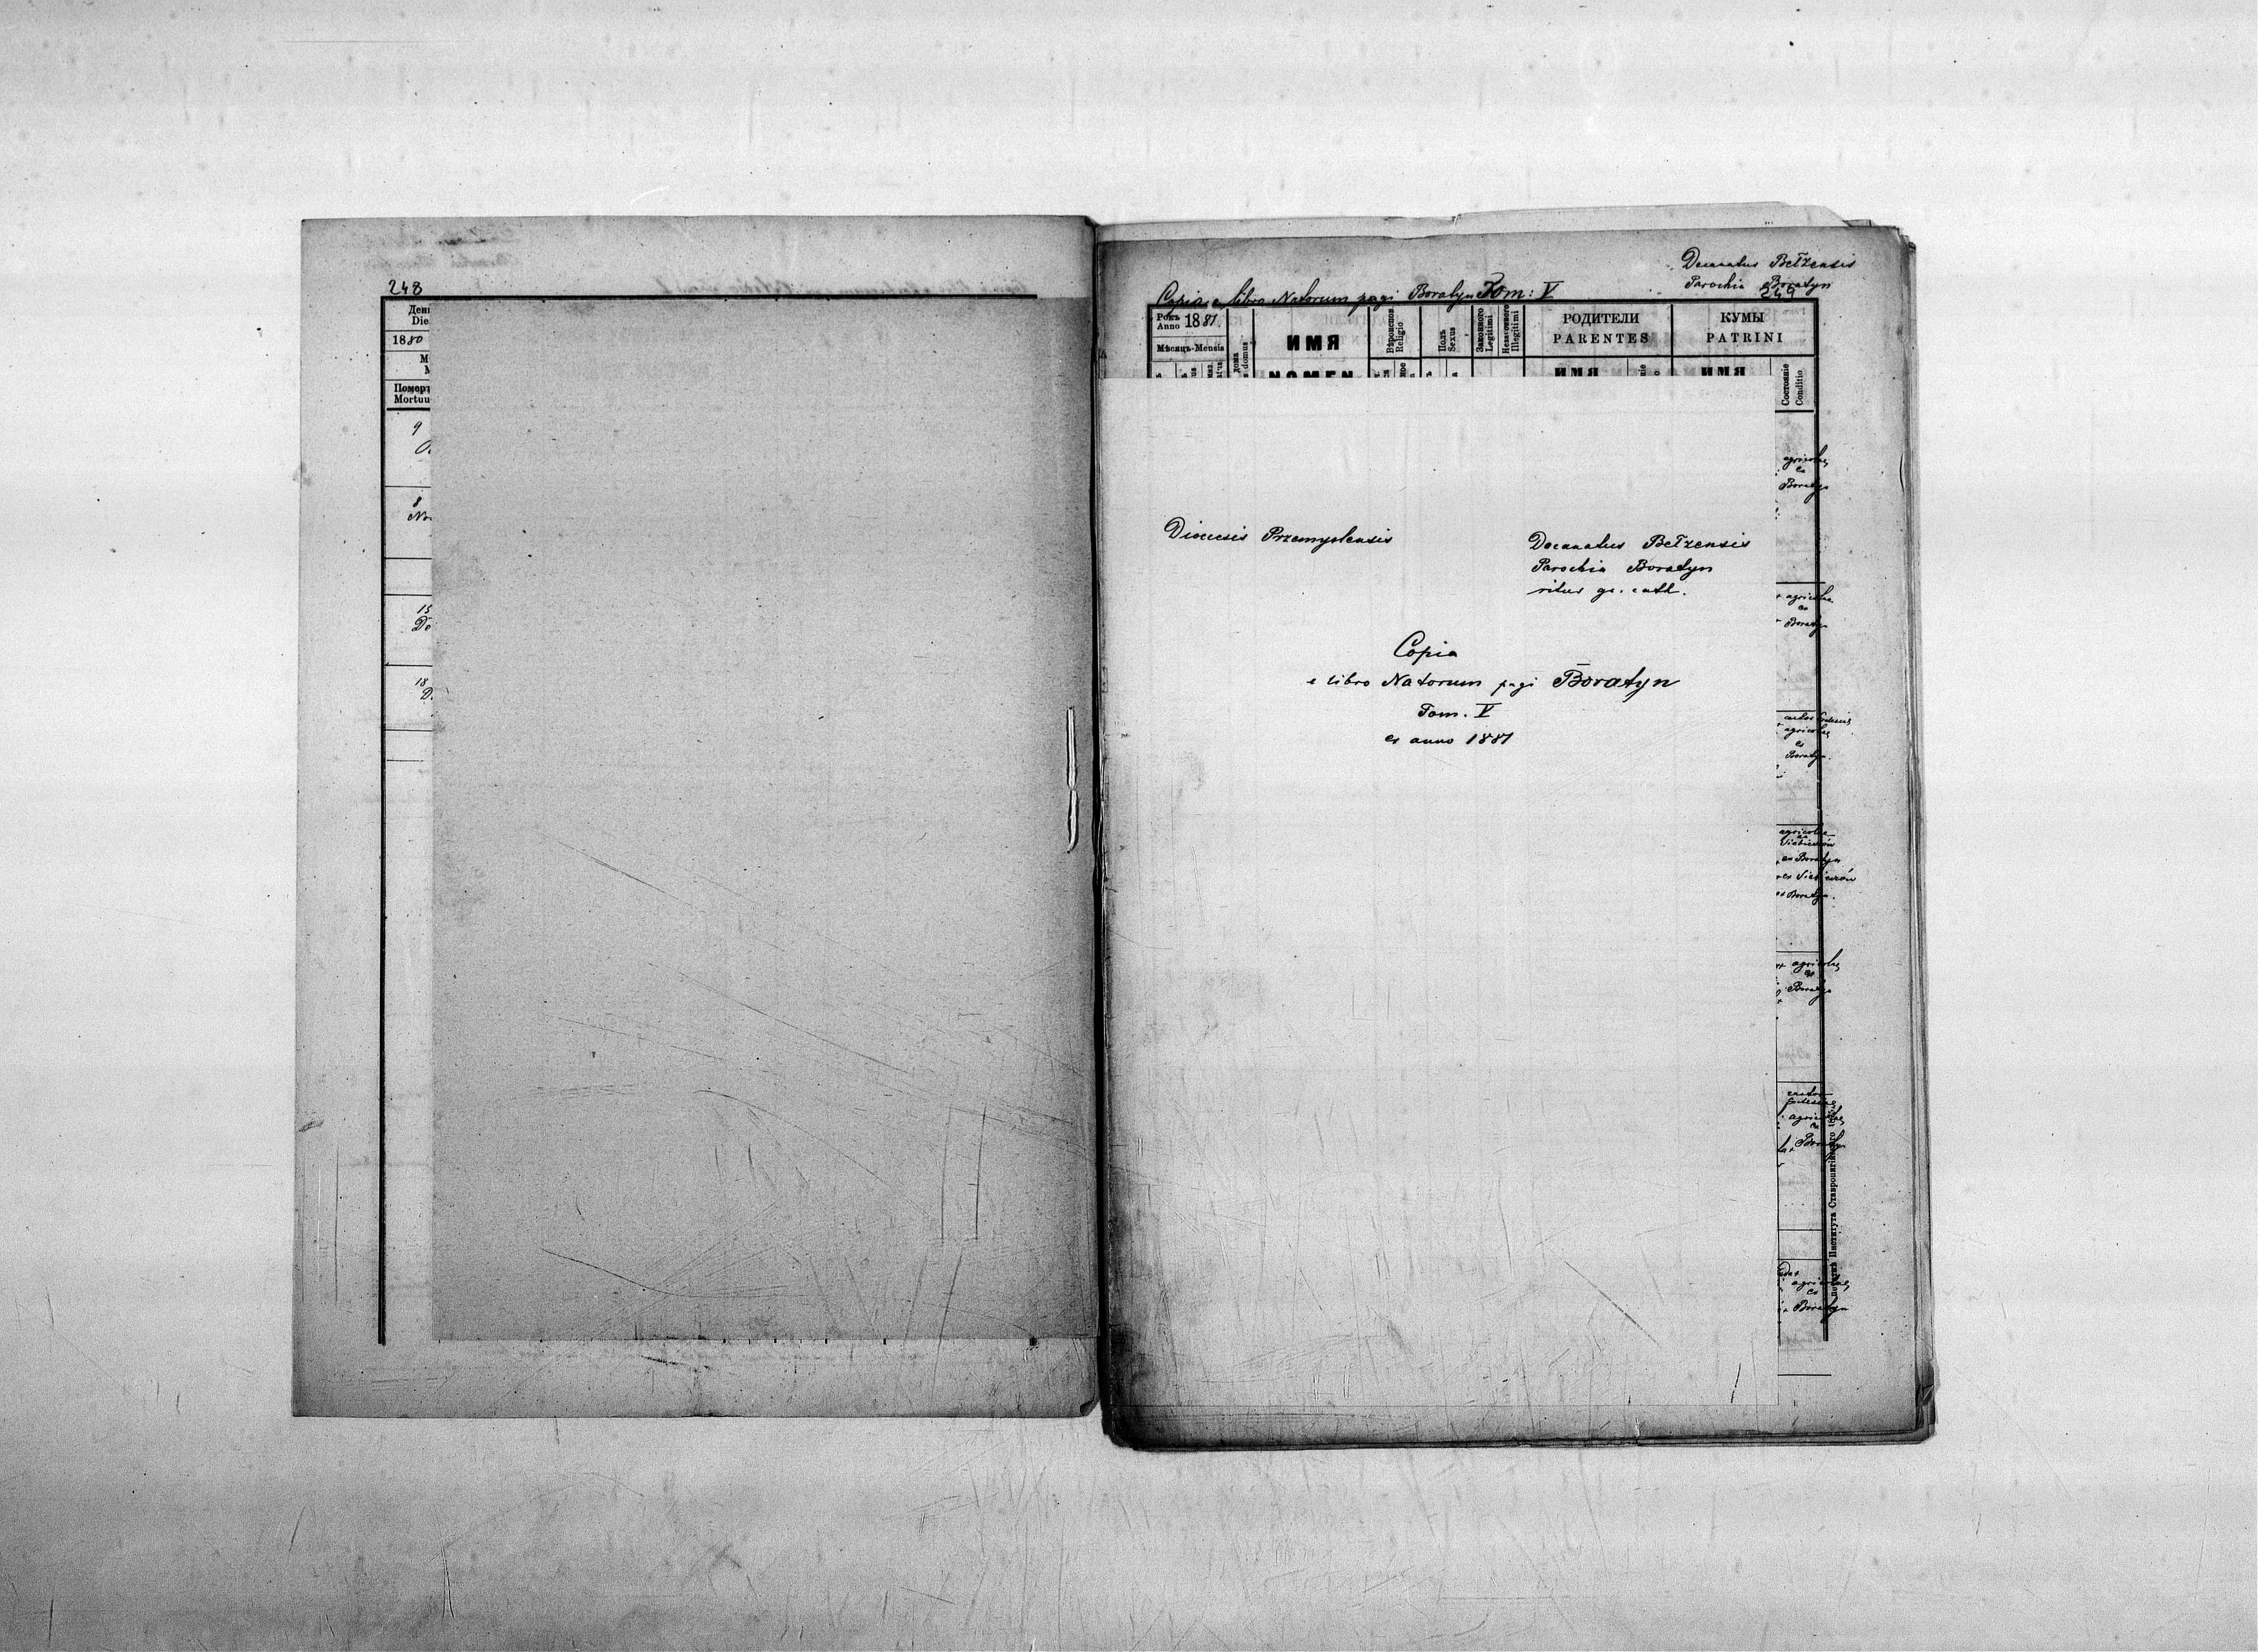 248
День
Die
1880
Помер
Mortuu
9
8
15
De
18
D.
Decanatus Bełzensis
Parochia Boratyn
249
Copia e libro Natorum pagi Boratyn Tom: V
Рокъ
Anno 1881.
Мѣсяцъ-Mensis
дома
domus
ИМЯ
NOMEN
Вѣроисповѣд.
Religio
Полъ
Sexus
Законного
Legitimi
Незаконного
Illegitimi
РОДИТЕЛИ
PARENTES
ИМЯ
КУМЫ
PATRINI
ИМЯ
Состояніе
Conditio
Dioecesis Przemyslensis
Decanatus Bełzensis
Parochia Boratyn
ritus gr. cath.
Copia
e libro Natorum pagi Boratyn
Tom. V
ex anno 1881
agricolae
ex
Boratyn
agricolae
ex
Boratyn
agricolae
ex
Boratyn
agricolae
ex Boratyn
ex Boratyn.
agricolae
ex
Boratyn
agricolae
ex
Boratyn
agricolae
ex
Boratyn
Института Ставропигійского